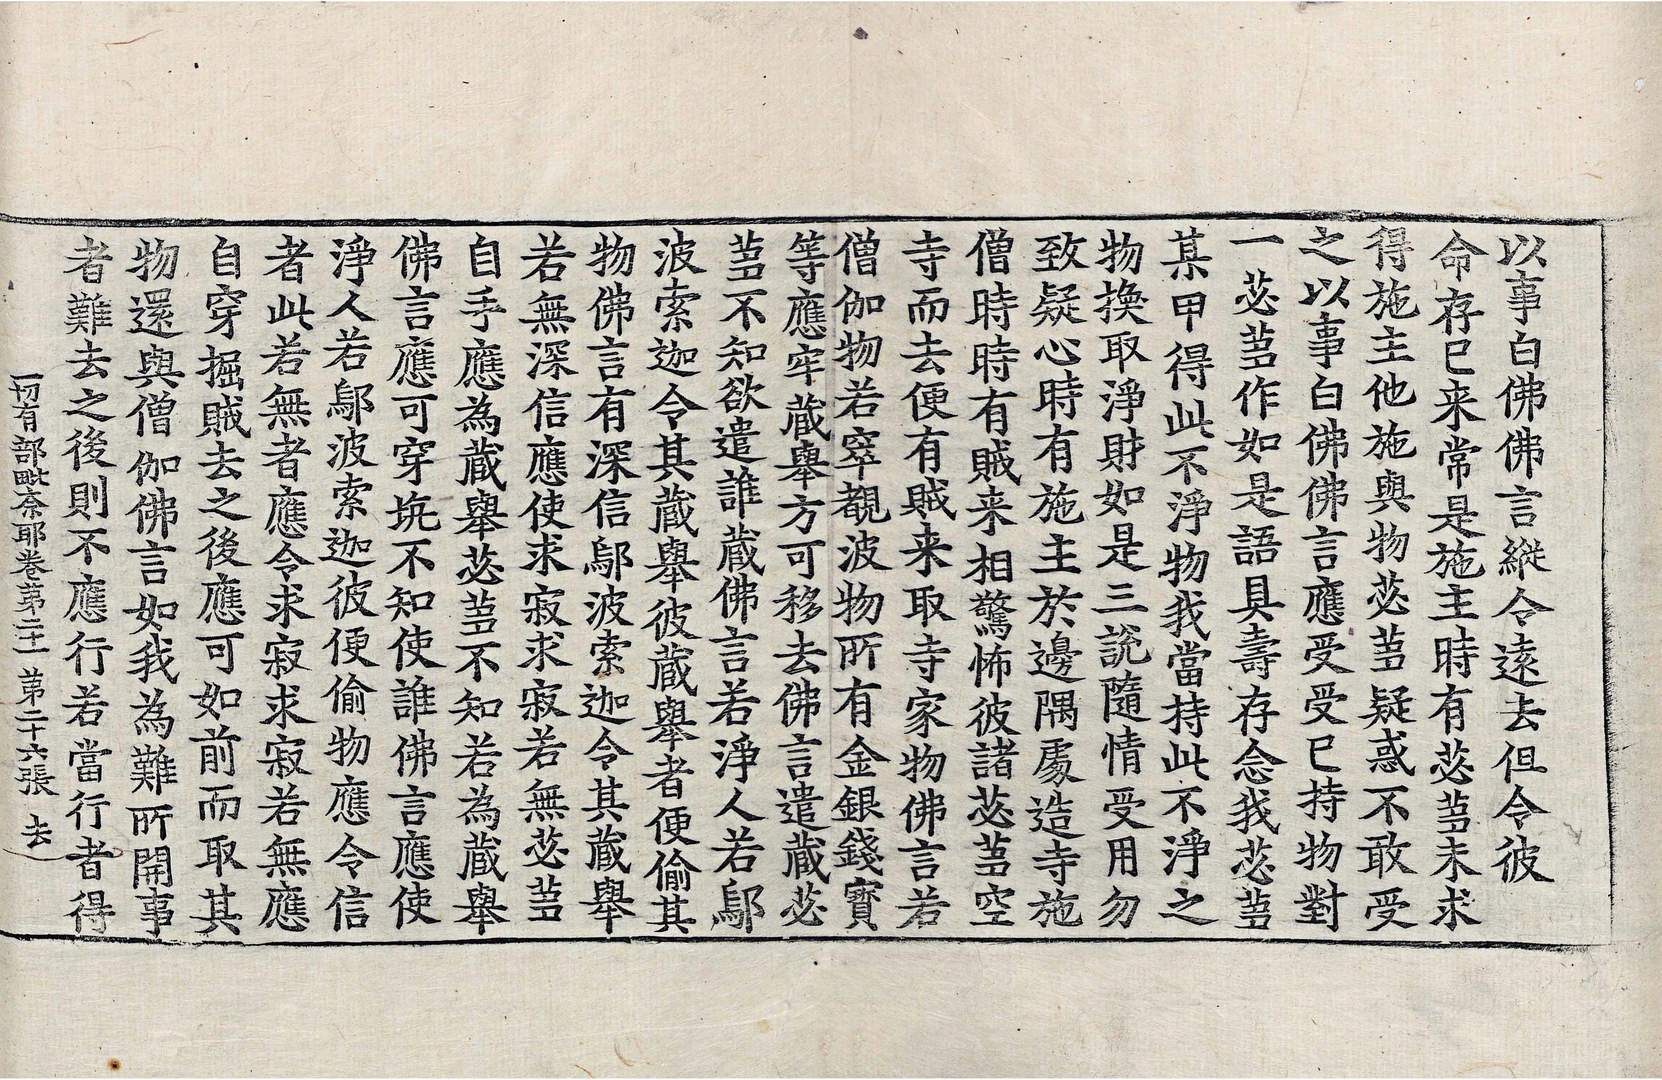 以事白佛佛言縱令遠去但令彼
命存已来常是施主時有苾芻未求
得施主他施與物苾芻疑惑不敢受
之以事白佛佛言應受受已持物對
一苾芻作如是語具壽存念我苾芻
某甲得此不淨物我當持此不淨之
物換取淨財如是三說隨情受用勿
致疑心時有施主於邊隅處造寺施
僧時時有賊来相驚怖彼諸苾芻空
寺而去便有賊来取寺家物佛言若
僧伽物若窣覩波物所有金銀錢寳
等應牢藏舉方可移去佛言遣藏苾
芻不知欲遣誰藏佛言若淨人若鄔
波索迦令其藏舉彼藏舉者便偷其
物佛言有深信鄔波索迦令其藏舉
若無深信應使求寂求寂若無苾芻
自手應為藏舉苾芻不知若為藏舉
佛言應可穿坑不知使誰佛言應使
淨人若鄔波索迦彼便偷物應令信
者此若無者應令求寂求寂若無應
自穿掘賊去之後應可如前而取其
物還與僧伽佛言如我為難所開事
者難去之後則不應行若當行者得
一切有部毗奈耶卷第二十一 第二十六張 去